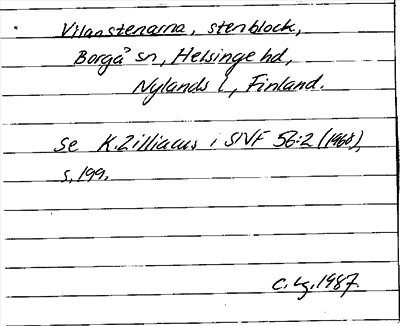 Vilaastenarna, stenblock,
Borgå sn, Helsinge hd,
Nylands l, Finland.
se K. Zilliacus i SNF 56:2 (1968),
s, 199.
C. Lg. 1987.